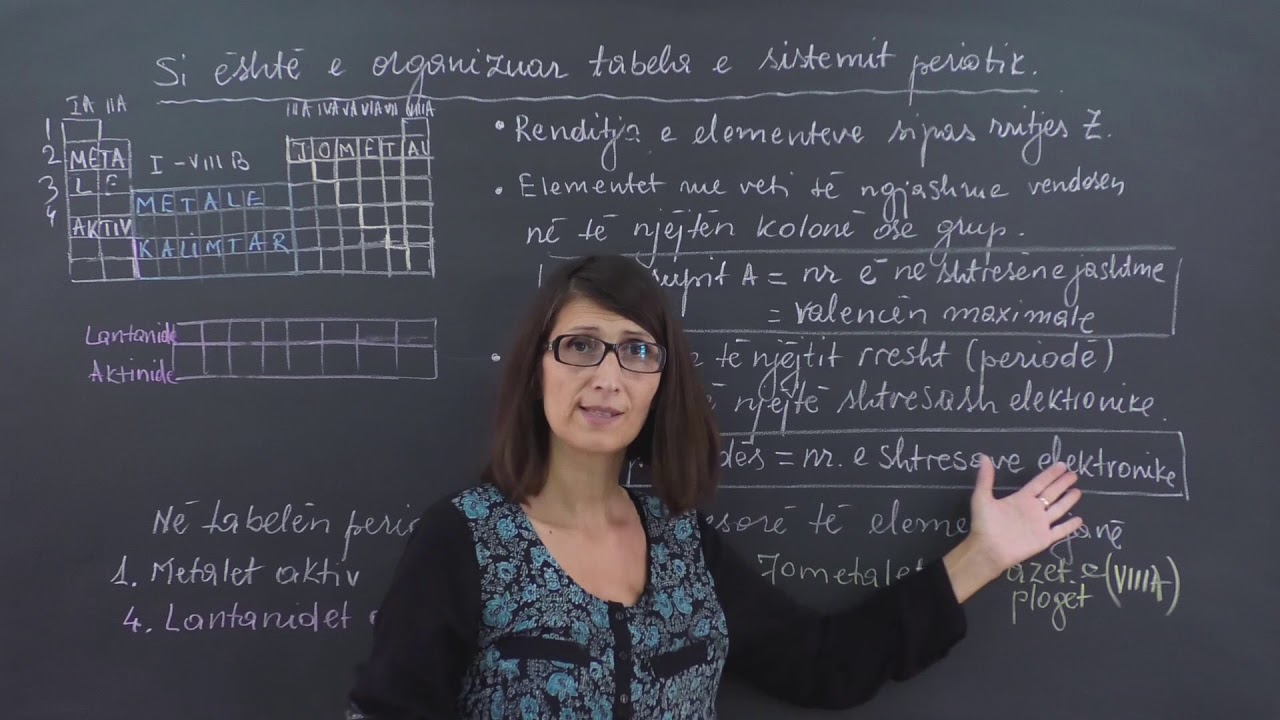 Si është e organizuar tabela e sistemit periodik.
IA IIA
IIIA IVA VA VIA VII VIIIA
1
2
3
4
META
LE
AKTIV
I - VIII B
METALE
KALIMTAR
JOMETAL
Lantanide
Aktinide
• Renditja e elementeve sipas rritjes Z.
• Elementet me veti të ngjashme vendosen
në të njëjtën kolonë ose grup.
A = nr e⁻ në shtresën e jashtme
= valencën maximale
• të njëjtit rresht (periodë)
njëjtë shtresash elektronike.
= nr. e shtresave elektronike
Në tabelën të
1. Metalet aktiv
Jometalet
(VIIIA)
ploget
4. Lantanidet